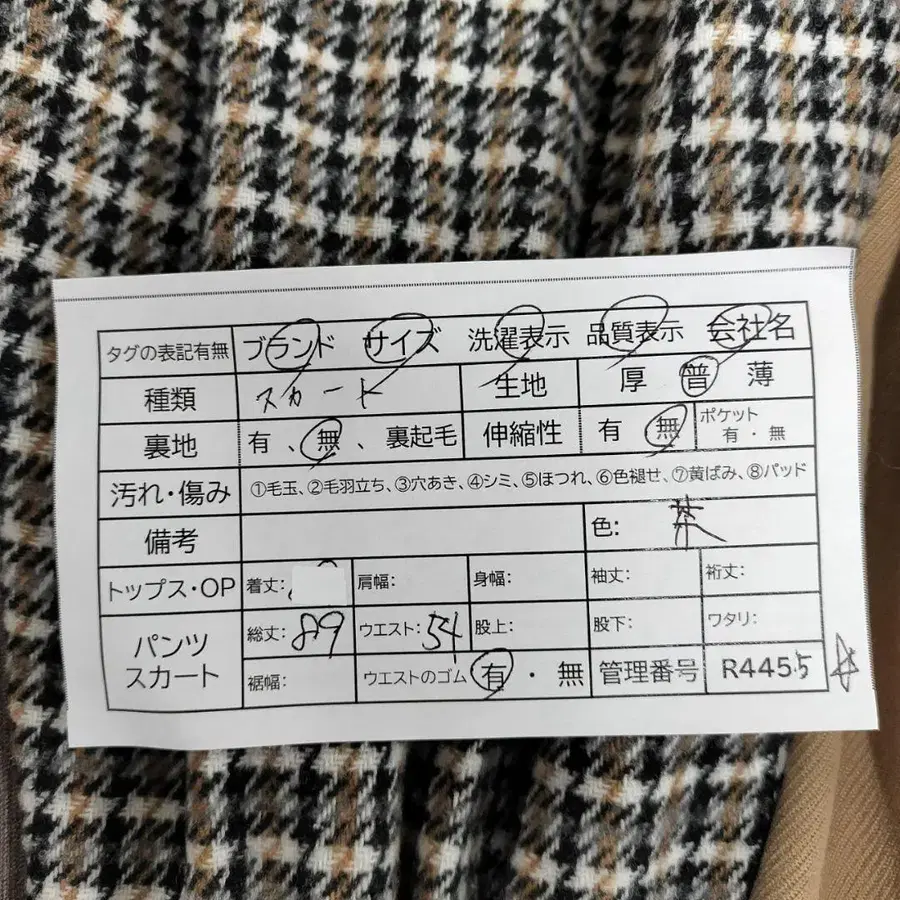 タグの表記有無 ブランド サイズ 洗濯表示 品質表示 会社名
種類 スカート 生地 厚 普 薄
裏地 有 、無 、裏起毛 伸縮性 有 無 ポケット 有 ・ 無
汚れ・傷み ①毛玉、②毛羽立ち、③穴あき、④シミ、⑤ほつれ、⑥色褪せ、⑦黄ばみ、⑧パッド
備考 色: 茶
トップス・OP 着丈: 肩幅: 身幅: 袖丈: 裄丈:
パンツ スカート 総丈: 89 ウエスト: 54 股上: 股下: ワタリ:
裾幅: ウエストのゴム 有 ・ 無 管理番号 R4455